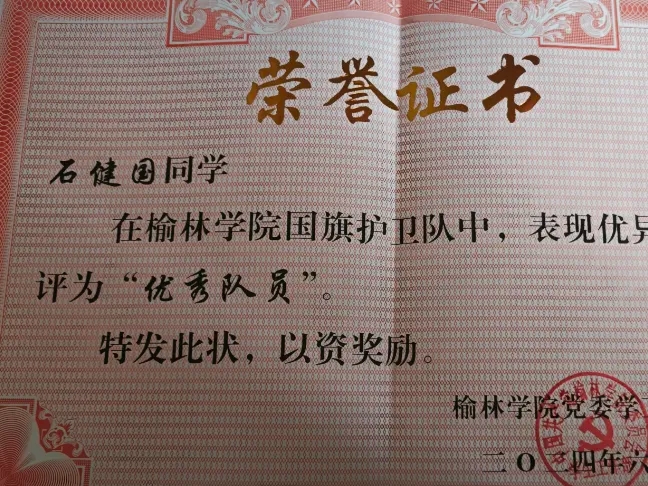 荣誉证书
石健国同学
在榆林学院国旗护卫队中，表现优异
评为“优秀队员”。
特发此状，以资奖励。
榆林学院党委学
二〇二四年六